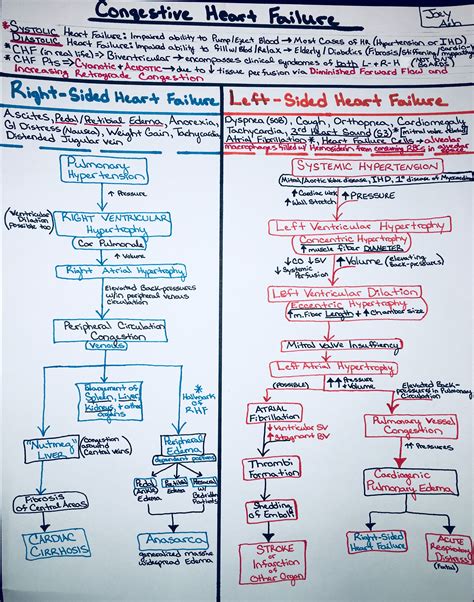 Congestive Heart Failure
Joey
* SYSTOLIC Heart Failure: Impaired ability to Pump/Eject Blood → Most Cases of HF (Hypertension or IHD)
* DIASTOLIC Heart Failure: Impaired ability to fill w/ Blood/Relax → Elderly / Diabetics (Fibrosis/stiffening
* CHF (in real life) => Biventricular → encompasses clinical syndromes of both L + R-H
* CHF Pts => Cyanotic + Acidotic → due to ↓ tissue perfusion via Diminished Forward Flow and
Increasing Retrograde Congestion
Right-Sided Heart Failure
Ascites, Pedal/Pretibial Edema, Anorexia,
GI Distress (Nausea), Weight Gain, Tachycardia
Distended Jugular vein
Pulmonary
Hypertension
↑ Pressure
(Ventricular
Dilation
possible too)
RIGHT VENTRICULAR
Hypertrophy
(Cor Pulmonale)
Right Atrial Hypertrophy
Elevated Back-pressures
w/in peripheral venous
circulation
Peripheral Circulation
Congestion
venous
Enlargement of
Spleen, Liver
Kidneys + other
organs
* Hallmark
of
RHF
"Nutmeg"
LIVER
(Congestion
around
Central veins)
Peripheral
Edema
dependent portions
Pedal
(Ankles)
Edema
Pretibial
Edema
Presacral
w/
Bedridden
Patients
Fibrosis
of Central Areas
CARDIAC
CIRRHOSIS
Anasarca
generalized massive
widespread Edema
Left-Sided Heart Failure
Dyspnea (SOB), Cough, Orthopnea, Cardiomegaly
Tachycardia, 3rd Heart Sound (S3)
Atrial Fibrillation, * Heart Failure Cells → alveolar
macrophages filled w/ Hemosiderin from
SYSTEMIC HYPERTENSION
Mitral/Aortic Valve disease, IHD, 1° disease of Myocardium
↑ Cardiac Work
↑ Wall Stretch
↑ PRESSURE
Left Ventricular Hypertrophy
Concentric Hypertrophy
↑ muscle fiber DIAMETER
↓CO ↓SV
↓ Systemic
Perfusion
↑ Volume (Elevating
Back-pressures)
Left Ventricular Dilation
Eccentric Hypertrophy
↑ m. Fiber Length + ↑ Chamber size
Mitral valve Insufficency
Left Atrial Hypertrophy
(possible)
↑↑ Pressure
+ Volume
Elevated Back-
pressures in Pulmonary
Circulation
ATRIAL
Fibrillation
↓ Ventricular SV
↑ stagnant BV
Thrombi
Formation
Shedding
of Emboli
STROKE
or
Infarction of
Other Organ
Pulmonary Vessel
Congestion
↑ Pressures
Cardiogenic
Pulmonary Edema
Right-Sided
Heart Failure
ACUTE
Respiratory
Distress
(Fatal)